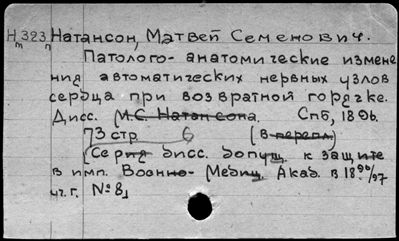 Нm 323/п Натансон, Матвей Семенович.
Патолого-анатомические измене
ния автоматических нервных узлов
сердца при возвратной горячке.
Дисс. М.С. Натансона. Спб, 1896.
73 стр 6 (в перепл)
(Серия дисс. допущ. к защите
в имп. Военно-Медиц. Акад. в 1896/97
уч. г. № 8)